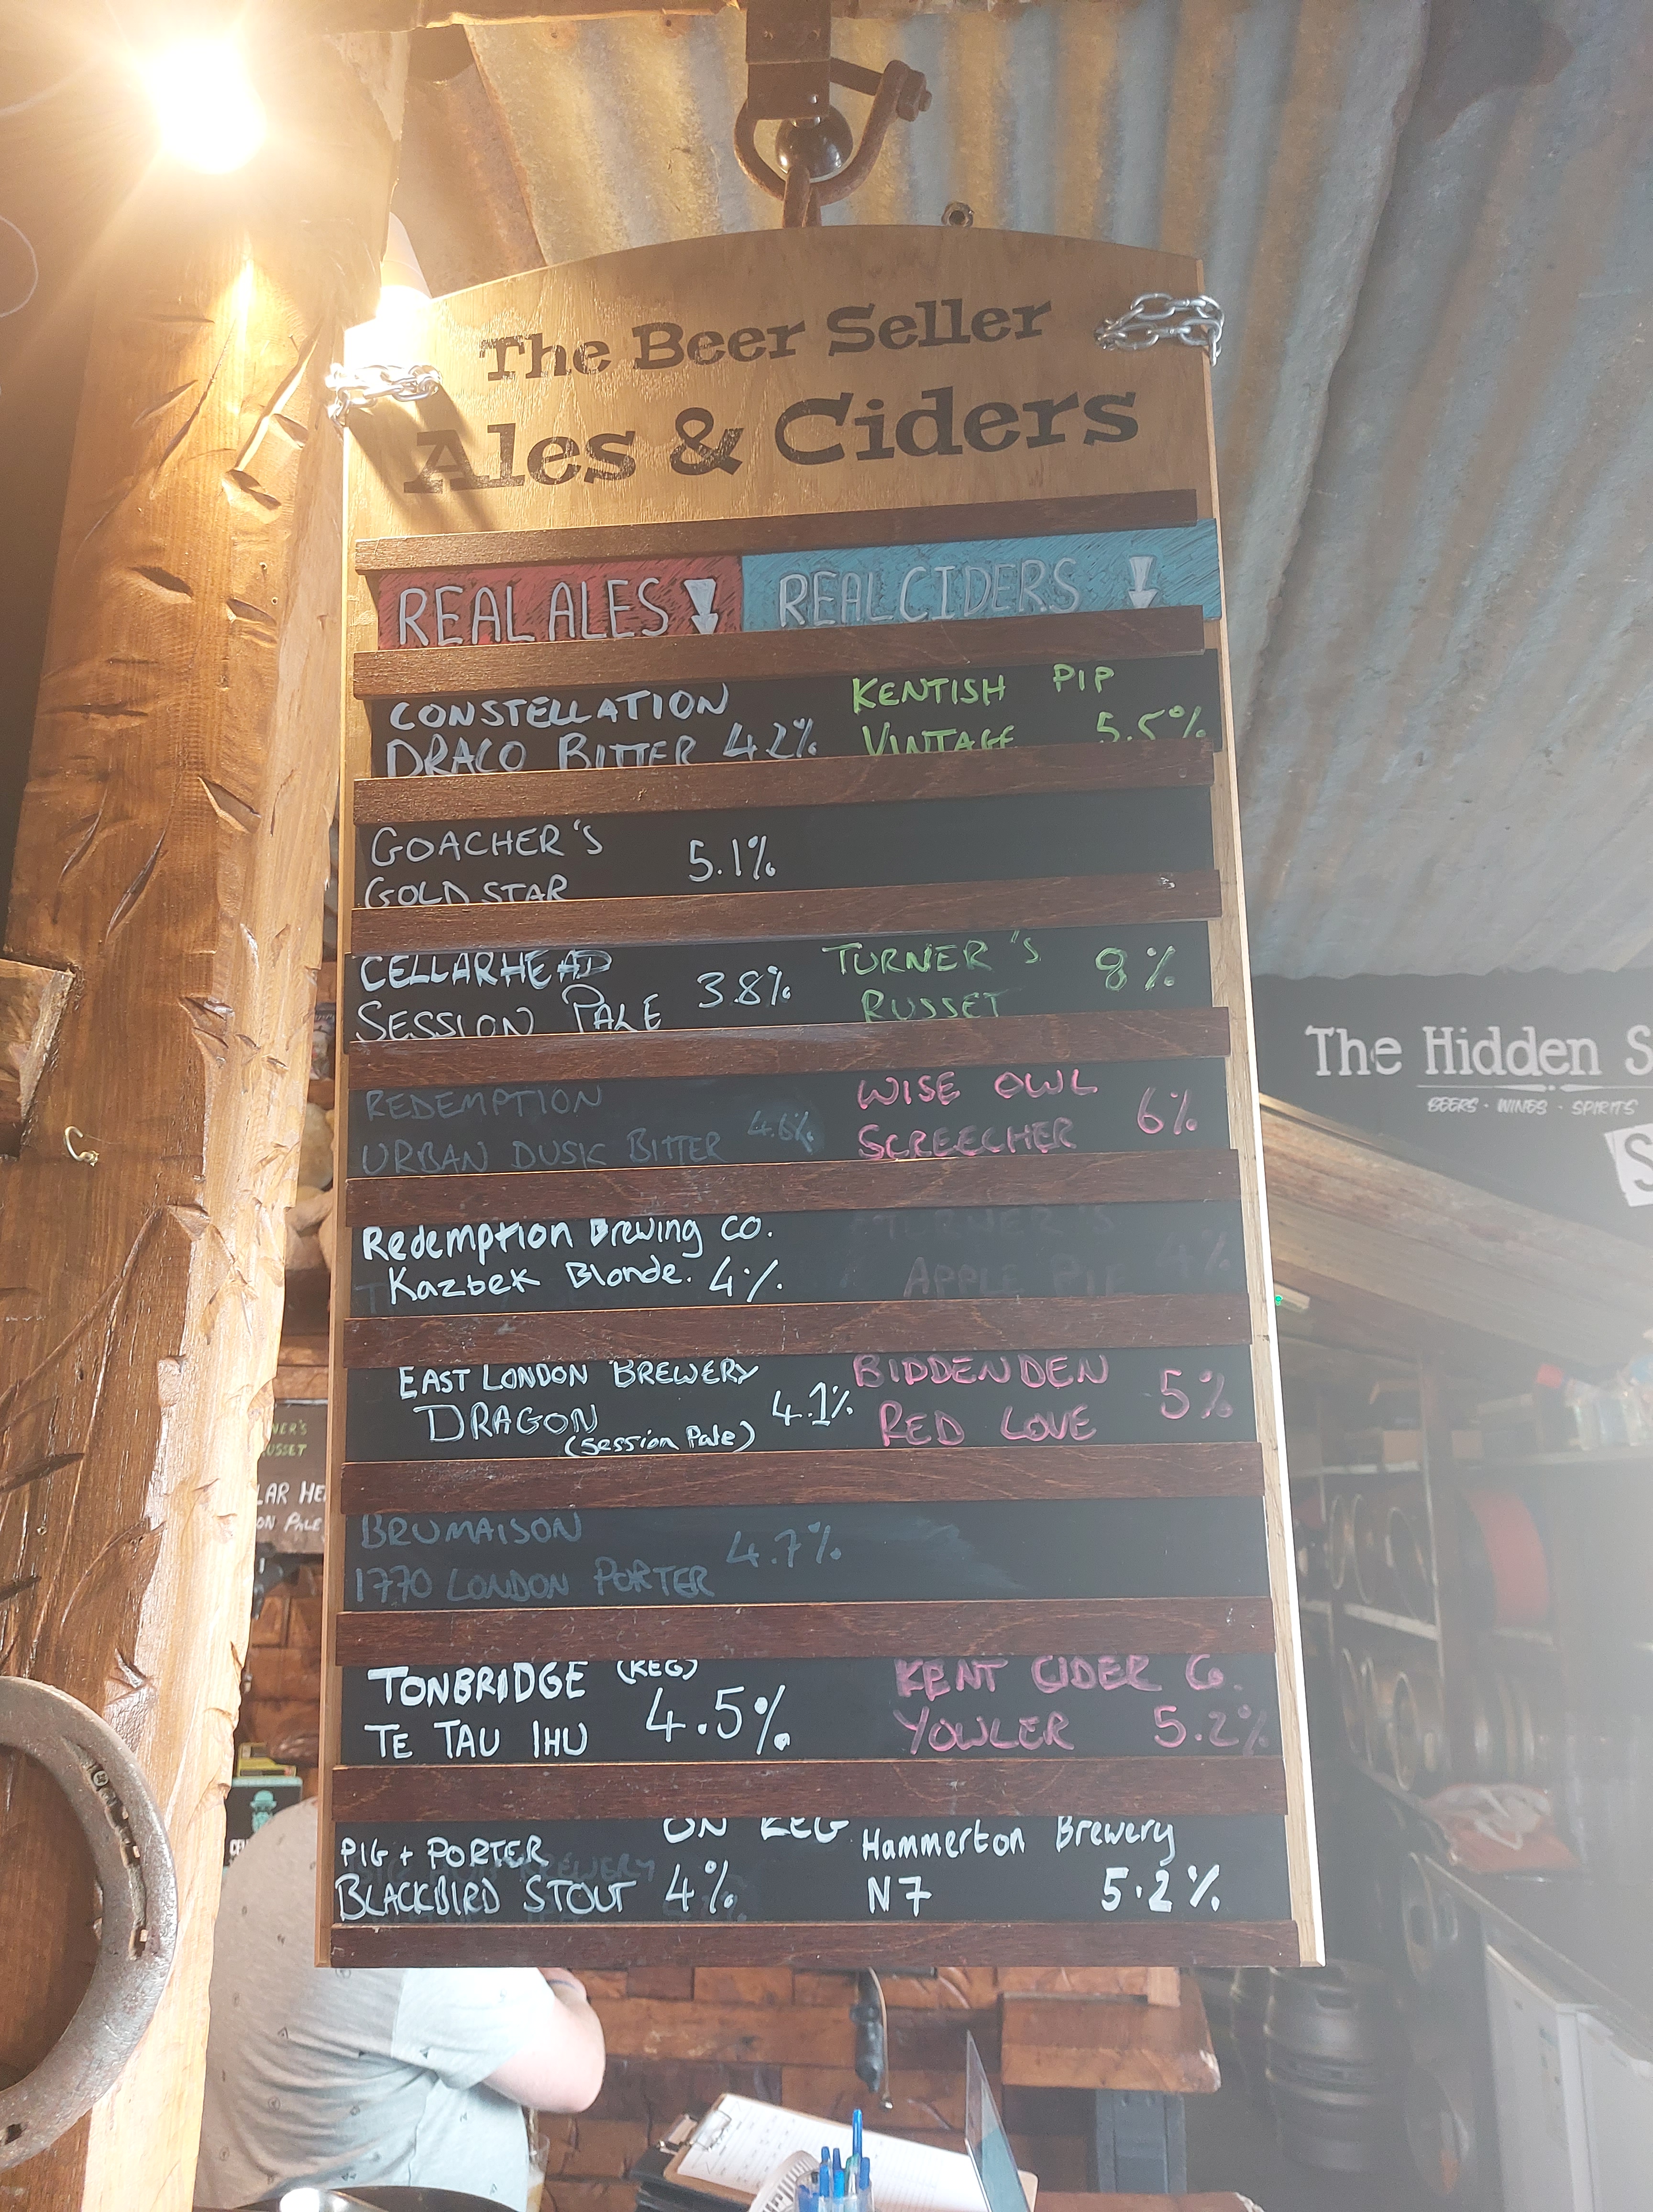 The Beer Seller
Ales & Ciders
REAL ALES
REAL CIDERS
CONSTELLATION
DRACO BITTER 4.2%
KENTISH PIP
VINTAGE 5.5%
GOACHER'S
GOLD STAR
5.1%
CELLARHEAD
SESSION PALE 3.8%
TURNER'S
RUSSET
8%
REDEMPTION
URBAN DUSK BITTER 4.6%
WISE OWL
SCREECHER
6%
Redemption Brewing Co.
Kazbek Blonde. 4%
TURNER'S
APPLE PIE
4%
EAST LONDON BREWERY
DRAGON
(Session Pale)
4.1%
BIDDENDEN
RED LOVE
5%
BRUMAISON
1770 LONDON PORTER
4.7%
TONBRIDGE (KEG)
TE TAU IHU
4.5%
KENT CIDER Co.
YOWLER 5.2%
ON KEG
PIG + PORTER
BLACKBIRD STOUT 4%
BREWERY
Hammerton Brewery
N7 5.2%
The Hidden S
BEERS · WINES · SPIRITS
S
NER'S
USSET
LAR HE
ON PALE